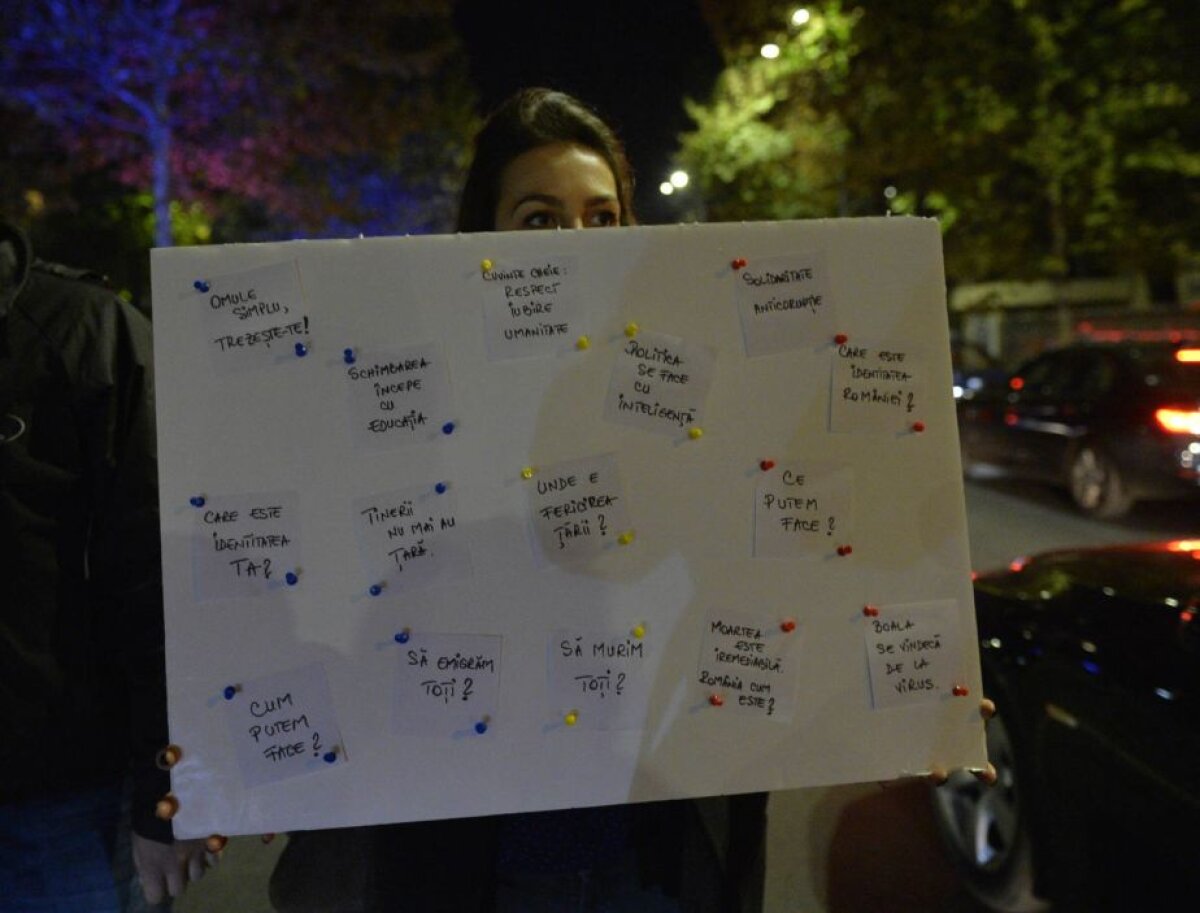 OMULE
SIMPLU,
TREZEȘTE-TE!
SCHIMBAREA
ÎNCEPE
CU
EDUCAȚIA
CUVINTE CHEIE:
RESPECT
IUBIRE
UMANITATE
POLITICA
SE FACE
CU
INTELIGENȚĂ
SOLIDARITATE
ANTICORUPȚIE
CARE ESTE
IDENTITATEA
ROMÂNIEI?
CARE ESTE
IDENTITATEA
TA?
TINERII
NU MAI AU
ȚARĂ.
UNDE E
FERICIREA
ȚĂRII?
CE
PUTEM
FACE?
CUM
PUTEM
FACE?
SĂ EMIGRĂM
TOȚI?
SĂ MURIM
TOȚI?
MOARTEA
ESTE
IREMEDIABILĂ.
ROMÂNIA CUM
ESTE?
BOALA
SE VINDECĂ
DE LA
VIRUS.